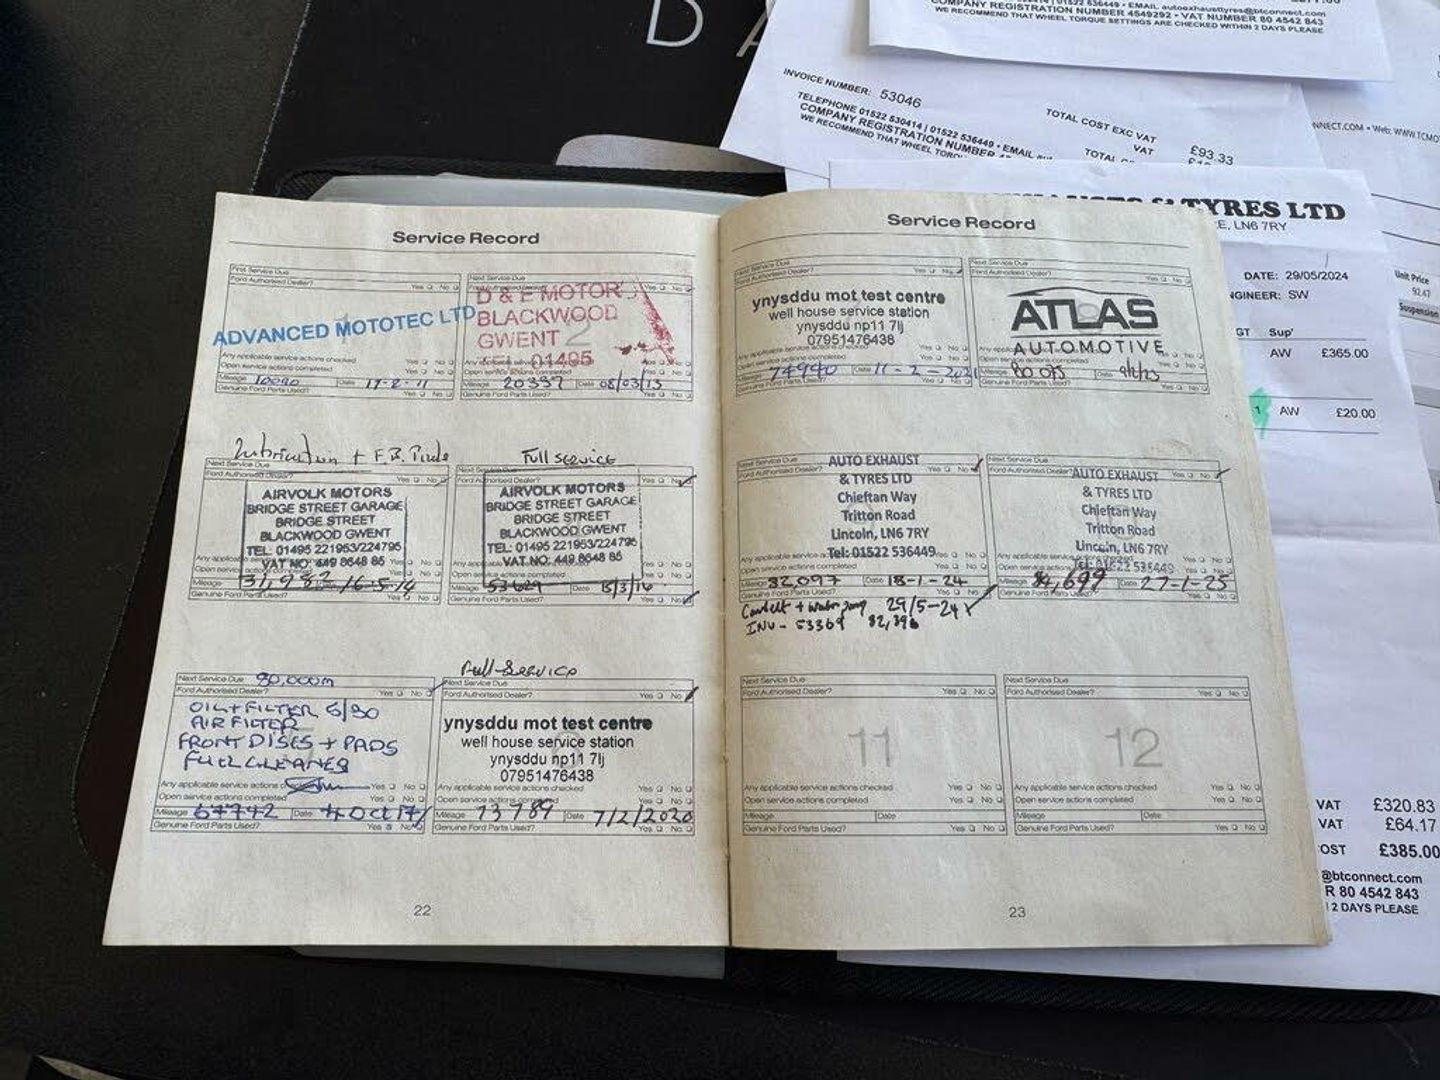 D A
COMPANY REGISTRATION NUMBER 4549292 • VAT NUMBER 80 4542 843
WE RECOMMEND THAT WHEEL TORQUE SETTINGS ARE CHECKED WITHIN 2 DAYS PLEASE
INVOICE NUMBER: 53046
TELEPHONE 01522 530414 | 01522 536449 • EMAIL
COMPANY REGISTRATION NUMBER
WE RECOMMEND THAT WHEEL
TOTAL COST EXC VAT £93.33
VAT
TOTAL
& TYRES LTD
LN6 7RY
DATE: 29/05/2024
SW
Sup'
AW £365.00
1 AW £20.00
VAT £320.83
VAT £64.17
£385.00
@btconnect.com
R 80 4542 843
2 DAYS PLEASE
Unit Price
92.47
Suspension
Service Record
First Service Due
Ford Authorised Dealer? Yes No
ADVANCED MOTOTEC LTD
Any applicable service actions checked Yes No
Open service actions completed Yes No
Mileage 10090 Date 17-2-11
Genuine Ford Parts Used? Yes No
Next Service Due
D & E MOTOR
BLACKWOOD
GWENT
01495
2
Mileage 20337 Date 08/03/13
Genuine Ford Parts Used? Yes No
Lubrication +
Next Service Due
Ford Authorised Dealer? Yes No
AIRVOLK MOTORS
BRIDGE STREET GARAGE
BRIDGE STREET
BLACKWOOD GWENT
TEL: 01495 221953/224795
VAT NO: 449 8648 85
Mileage 31,982 16-5-14
Genuine Ford Parts Used? Yes No
Full service
Next Service Due
Ford Authorised Dealer? Yes No
AIRVOLK MOTORS
BRIDGE STREET GARAGE
BRIDGE STREET
BLACKWOOD GWENT
TEL: 01495 221953/224795
VAT NO: 449 8648 85
Mileage 53629 Date 15/3/16
Genuine Ford Parts Used? Yes No
Next Service Due 80,000m
Ford Authorised Dealer? Yes No
OIL + FILTER 5/30
AIR FILTER
FRONT DISCS + PADS
FUEL CLEANER
Any applicable service actions Yes No
Open service actions completed Yes No
Mileage 67742 Date 4 Oct 17
Genuine Ford Parts Used? Yes No
Full Service
Next Service Due
Ford Authorised Dealer? Yes No
ynysddu mot test centre
well house service station
ynysddu np11 7lj
07951476438
Any applicable service actions checked Yes No
Open service actions completed Yes No
Mileage 73789 Date 7/2/2020
Genuine Ford Parts Used? Yes No
22
Service Record
Next Service Due
Ford Authorised Dealer? Yes No
ynysddu mot test centre
well house service station
ynysddu np11 7lj
07951476438
Open service actions completed Yes No
Mileage 74940 Date 11-2-2021
Genuine Ford Parts Used? Yes No
Next Service Due
Ford Authorised Dealer? Yes No
ATLAS
AUTOMOTIVE
Mileage 80075
Genuine Ford Parts Used? Yes No
Next Service Due
Ford Authorised Dealer? Yes No
AUTO EXHAUST
& TYRES LTD
Chieftan Way
Tritton Road
Lincoln, LN6 7RY
Tel: 01522 536449
Open service actions completed Yes No
Mileage 82097 Date 18-1-24
Genuine Ford Parts Used? Yes No
Cambelt + Water pump 29/5-24
INV - 53369 82,396
Next Service Due
Ford Authorised Dealer? Yes No
AUTO EXHAUST
& TYRES LTD
Chieftan Way
Tritton Road
Lincoln, LN6 7RY
Tel: 01522 536449
Open service actions completed Yes No
Mileage 84,699 Date 27-1-25
Genuine Ford Parts Used? Yes No
Next Service Due
Ford Authorised Dealer? Yes No
11
Any applicable service actions checked Yes No
Open service actions completed Yes No
Mileage Date
Genuine Ford Parts Used? Yes No
Next Service Due
Ford Authorised Dealer? Yes No
12
Any applicable service actions checked Yes No
Open service actions completed Yes No
Mileage Date
Genuine Ford Parts Used? Yes No
23